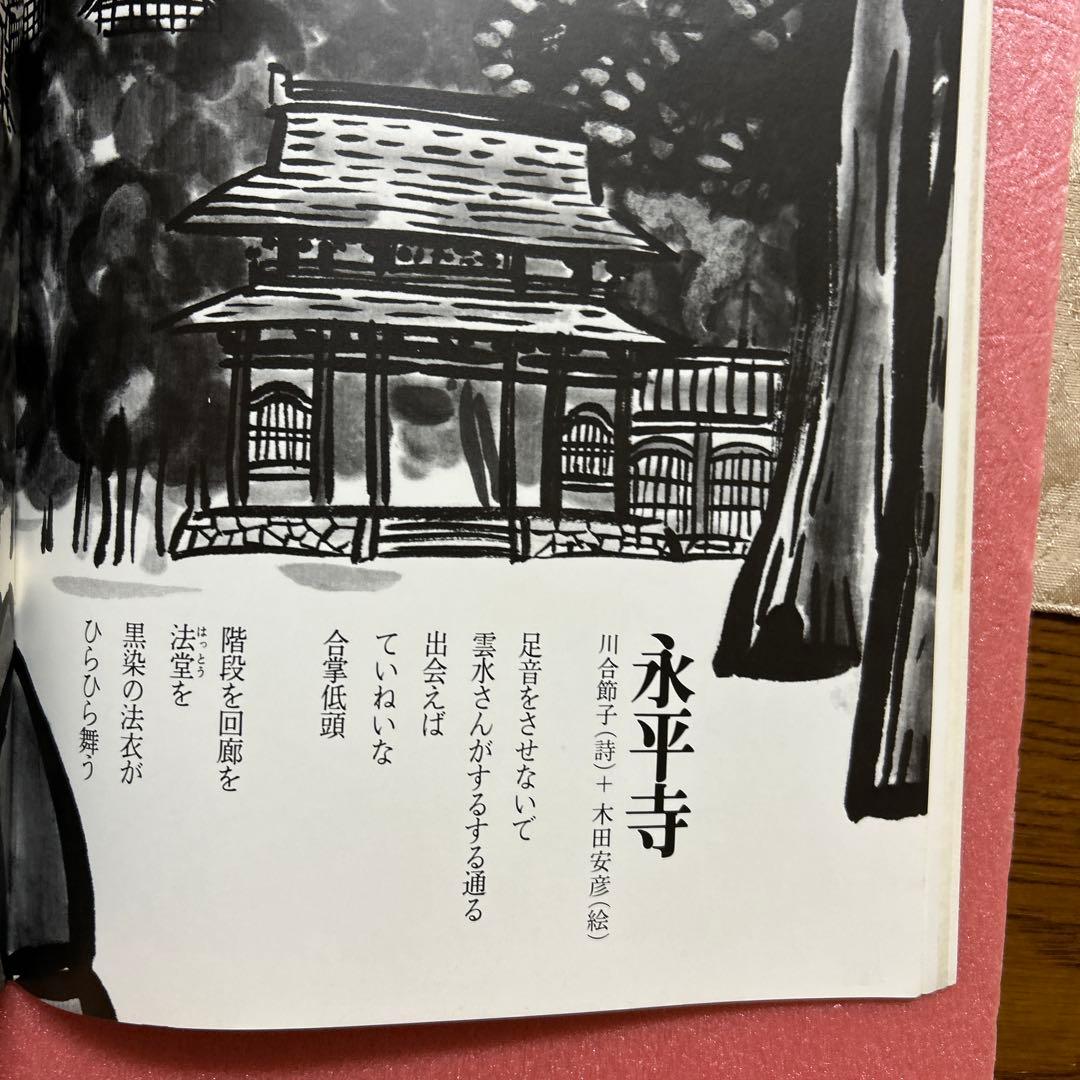 永平寺
川合節子（詩）＋木田安彦（絵）
足音をさせないで
雲水さんがするする通る
出会えば
ていねいな
合掌低頭
階段を回廊を
法堂を
はっとう
黒染の法衣が
ひらひら舞う